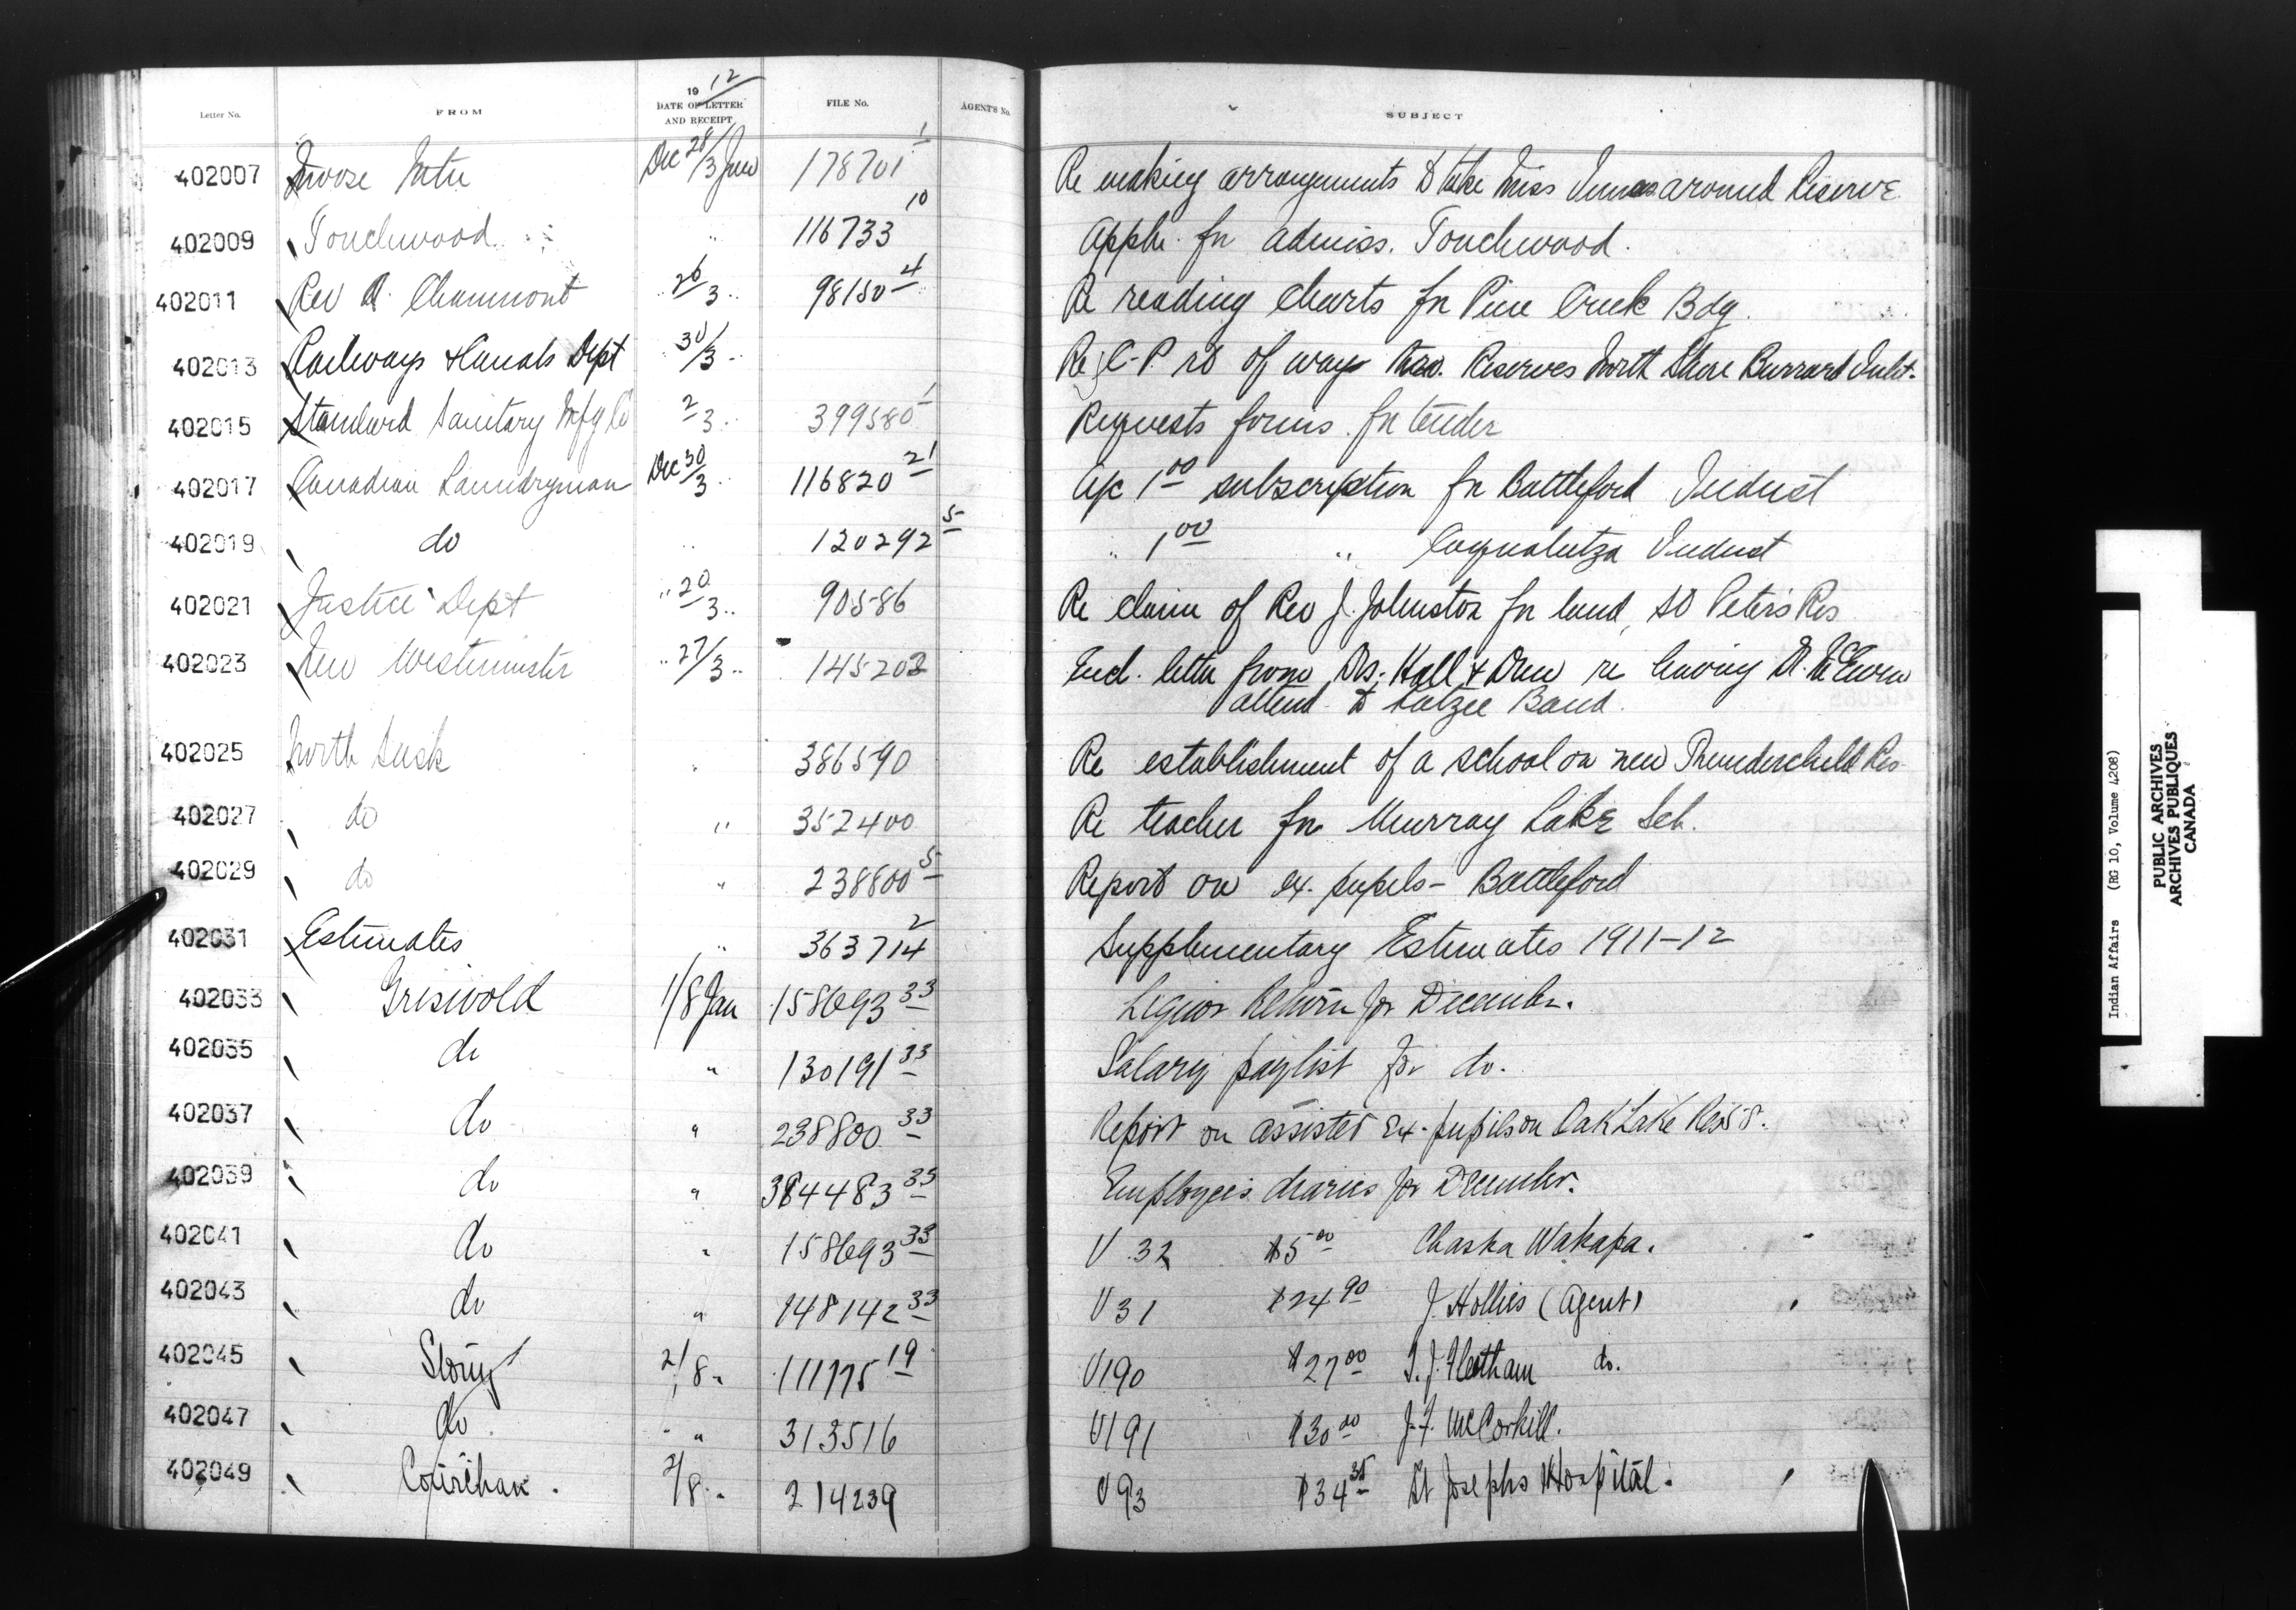 Letter No. FROM 1912 DATE OF LETTER AND RECEIPT FILE No. AGENT'S No. SUBJECT
402007 Moose Mtn Dec 28/3 Jan 178701 1 Re making arrangements to take Miss around Reserve
402009 Touchwood " 116733 10 Appln. for admiss. Touchwood.
402011 Rev A. Chaumont " 26/3 " 98150 4 Re reading charts for Pine Creek Bdg.
402013 Railways & Canals Dept " 30/3 " Re C-P rt of way thro. Reserves North Shore Burrard Inlet.
402015 Standard Sanitary Mfg Co 2/3 " 399580 1 Requests forms for tender
402017 Canadian Laundryman Dec 30/3 " 116820 21 A/c 1.00 subscription for Battleford Indust
402019 do " 120292 5 " 1.00 " Coqualeetza Indust
402021 Justice Dept " 20/3 " 90586 Re claim of Rev J. Johnston for land, St Peter's Res
402023 New Westminster " 27/3 " 145203 Encl. letter from Drs. Hall & Drew re having Dr. McEwen
attend to Katzee Band.
402025 North Sask " 386590 Re establishment of a school on new Thunderchild Res
402027 do " 352400 Re teacher for Murray Lake Sch.
402029 do " 238800 5 Report on ex. pupils - Battleford
402031 Estimates " 363714 2 Supplementary Estimates 1911-12
402033 Griswold 1/8 Jan 158693 33 Liquor Return for December.
402035 do " 130191 33 Salary paylist for do.
402037 do " 238800 33 Report on assisted Ex-pupils on Oak Lake Res 58.
402039 do " 384483 33 Employees diaries for December.
402041 do " 158693 33 V 32 $5.00 Chaska Wakapa.
402043 do " 148142 33 V 31 $24.90 J. Hollies (Agent)
402045 Stony 2/8 " 111775 19 V190 $27.00 T. J. Fleetham do.
402047 do " " 313516 V191 $30.00 J. F. McCorkill.
402049 2/8 " 214239 V93 $34.35 St Josephs Hospital.
Indian Affairs (RG 10, Volume 4208)
PUBLIC ARCHIVES
ARCHIVES PUBLIQUES
CANADA